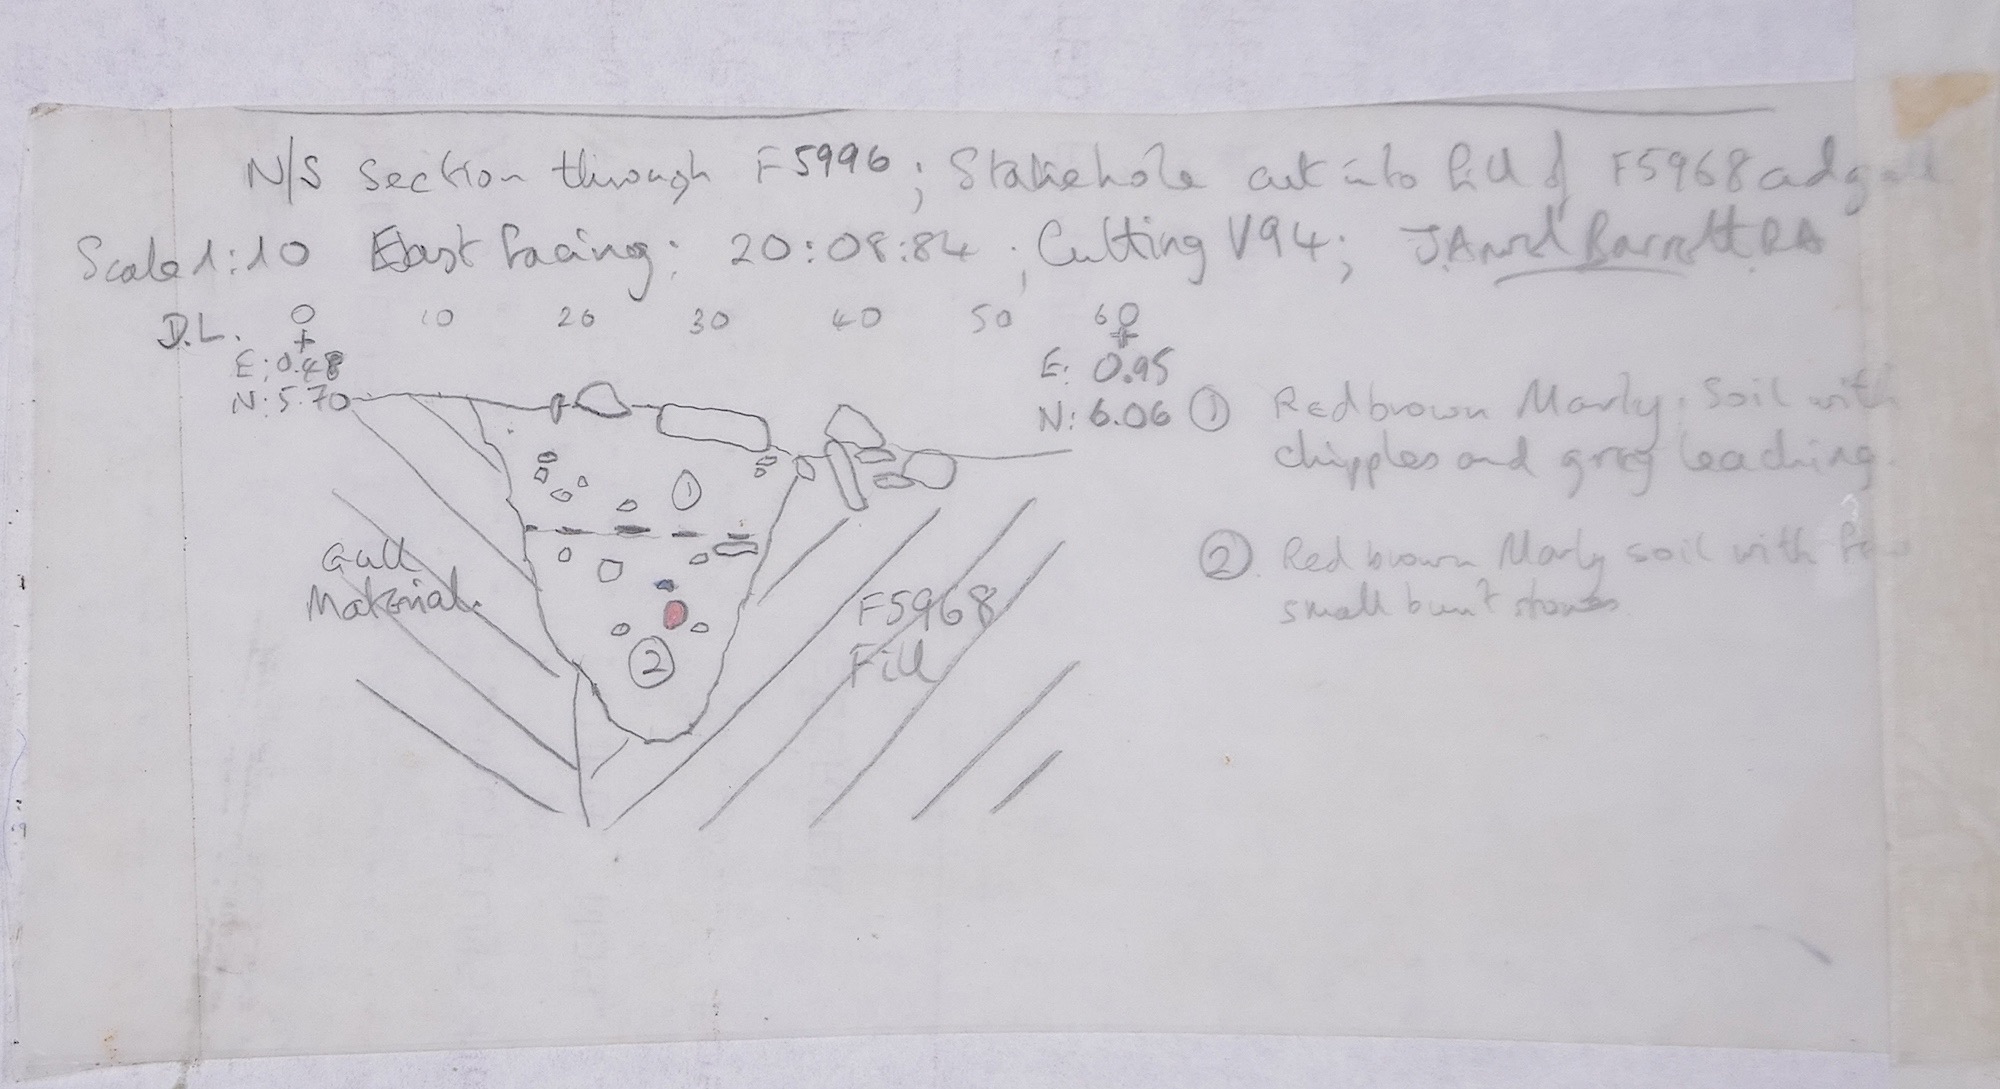 N/S Section through F5996; Stakehole cut into fill of F5968 and
Scale 1:10 East facing; 20:08:84; Cutting V94; Barrett
D.L. 0 10 20 30 40 50 60
E: 0.48
N: 5.70
E: 0.95
N: 6.06
① Red brown Marly Soil with
chipples and grey leaching.
② Red brown Marly soil with few
small burnt stones
①
Gull
Material.
F5968
Fill
②